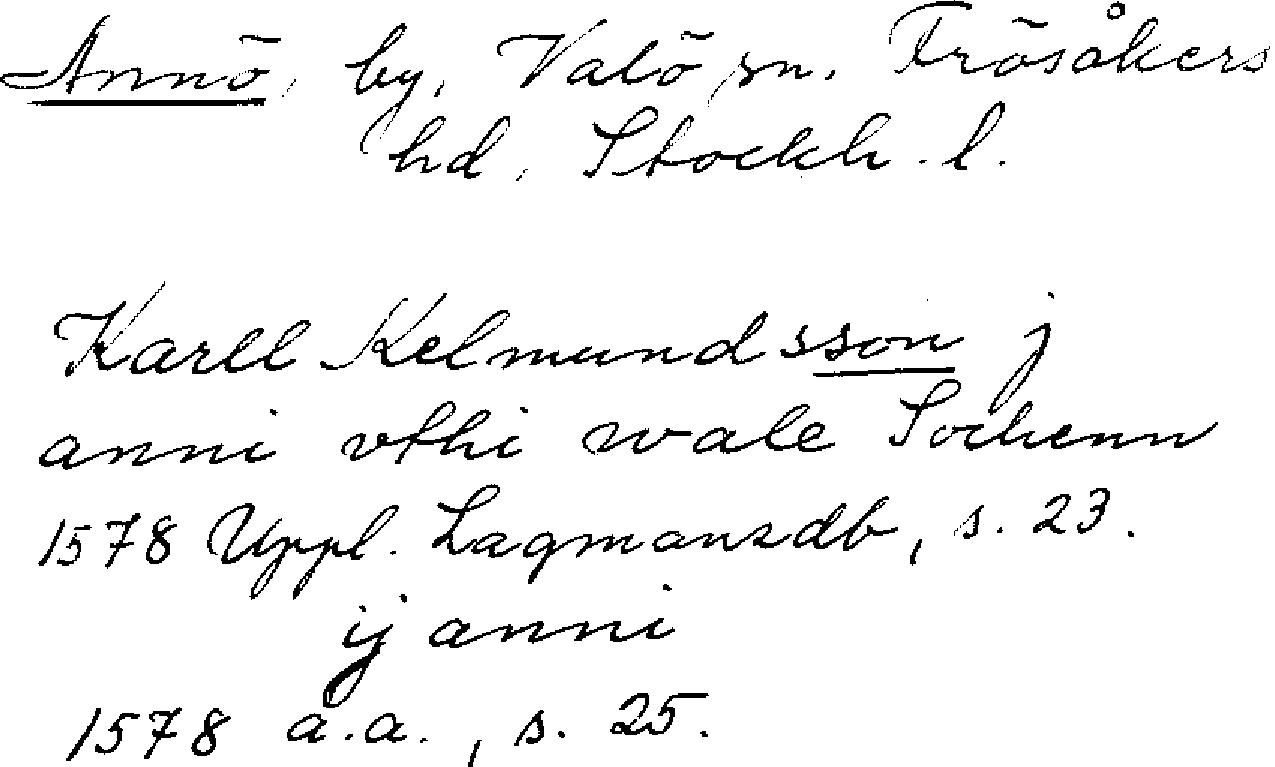 Annö, by, Valö sn. Frösåkers
hd, Stockh. l.
Karll Kelmundsson j
anni vthi wale Sochenn
1578 Uppl. Lagmansdb, s. 23.
ij anni
1578 a.a., s. 25.